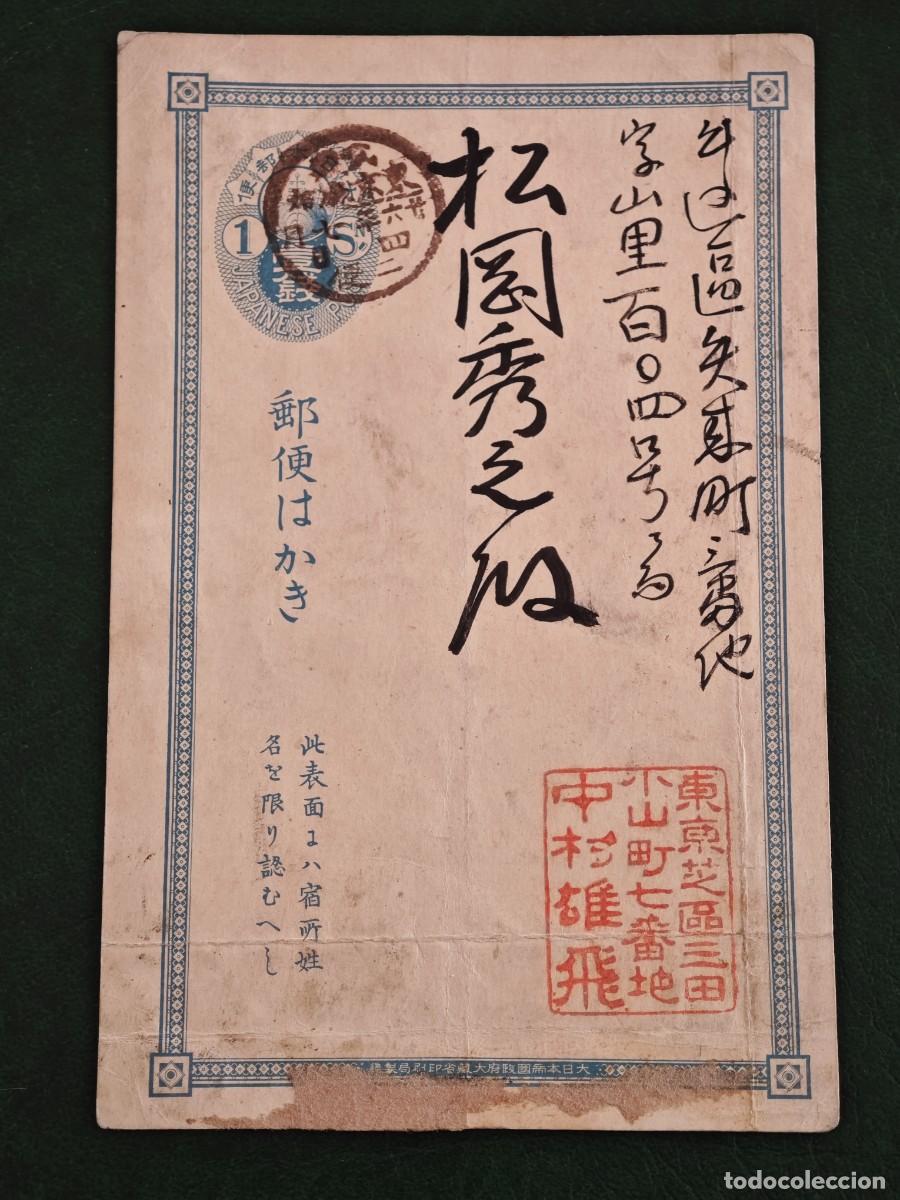 牛込區矢来町三番地
字山里百〇四号
松岡秀之殿
便郵
1 S.
壹錢
JAPANESE PO
郵便はかき
此表面ハ宿所姓
名を限り認むへし
東京芝區三田
小山町七番地
中村雄飛
大日本帝國政府大藏省印刷局製造
todocoleccion
todocoleccion.net